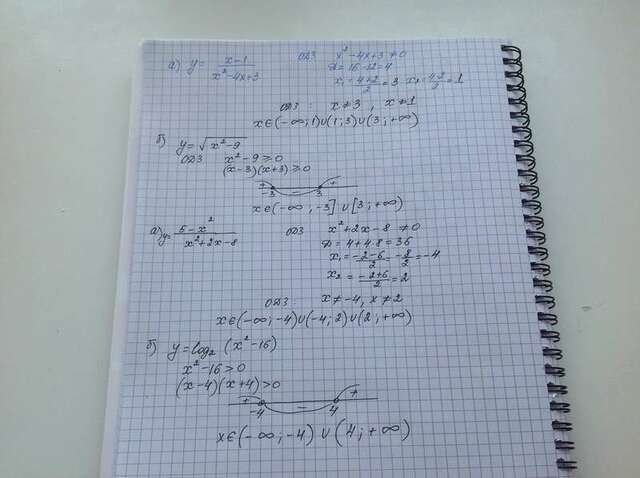 а) y = x-1 / x²-4x+3 ОДЗ x²-4x+3 ≠0
D=16-12=4
x₁=4+2/2=3 x₂=4-2/2=1
ОДЗ: x≠3, x≠1
x∈(-∞;1)∪(1;3)∪(3;+∞)
б) y=√x²-9
ОДЗ x²-9≥0
(x-3)(x+3)≥0
+ -3 - 3 +
x∈(-∞;-3]∪[3;+∞)
а) y= 5-x² / x²+2x-8 ОДЗ x²+2x-8 ≠0
D=4+4·8=36
x₁=-2-6/2=-8/2=-4
x₂=-2+6/2=2
ОДЗ: x≠-4, x≠2
x∈(-∞;-4)∪(-4;2)∪(2;+∞)
б) y=log₂ (x²-16)
x²-16>0
(x-4)(x+4)>0
+ -4 - 4 +
x∈(-∞;-4)∪(4;+∞)